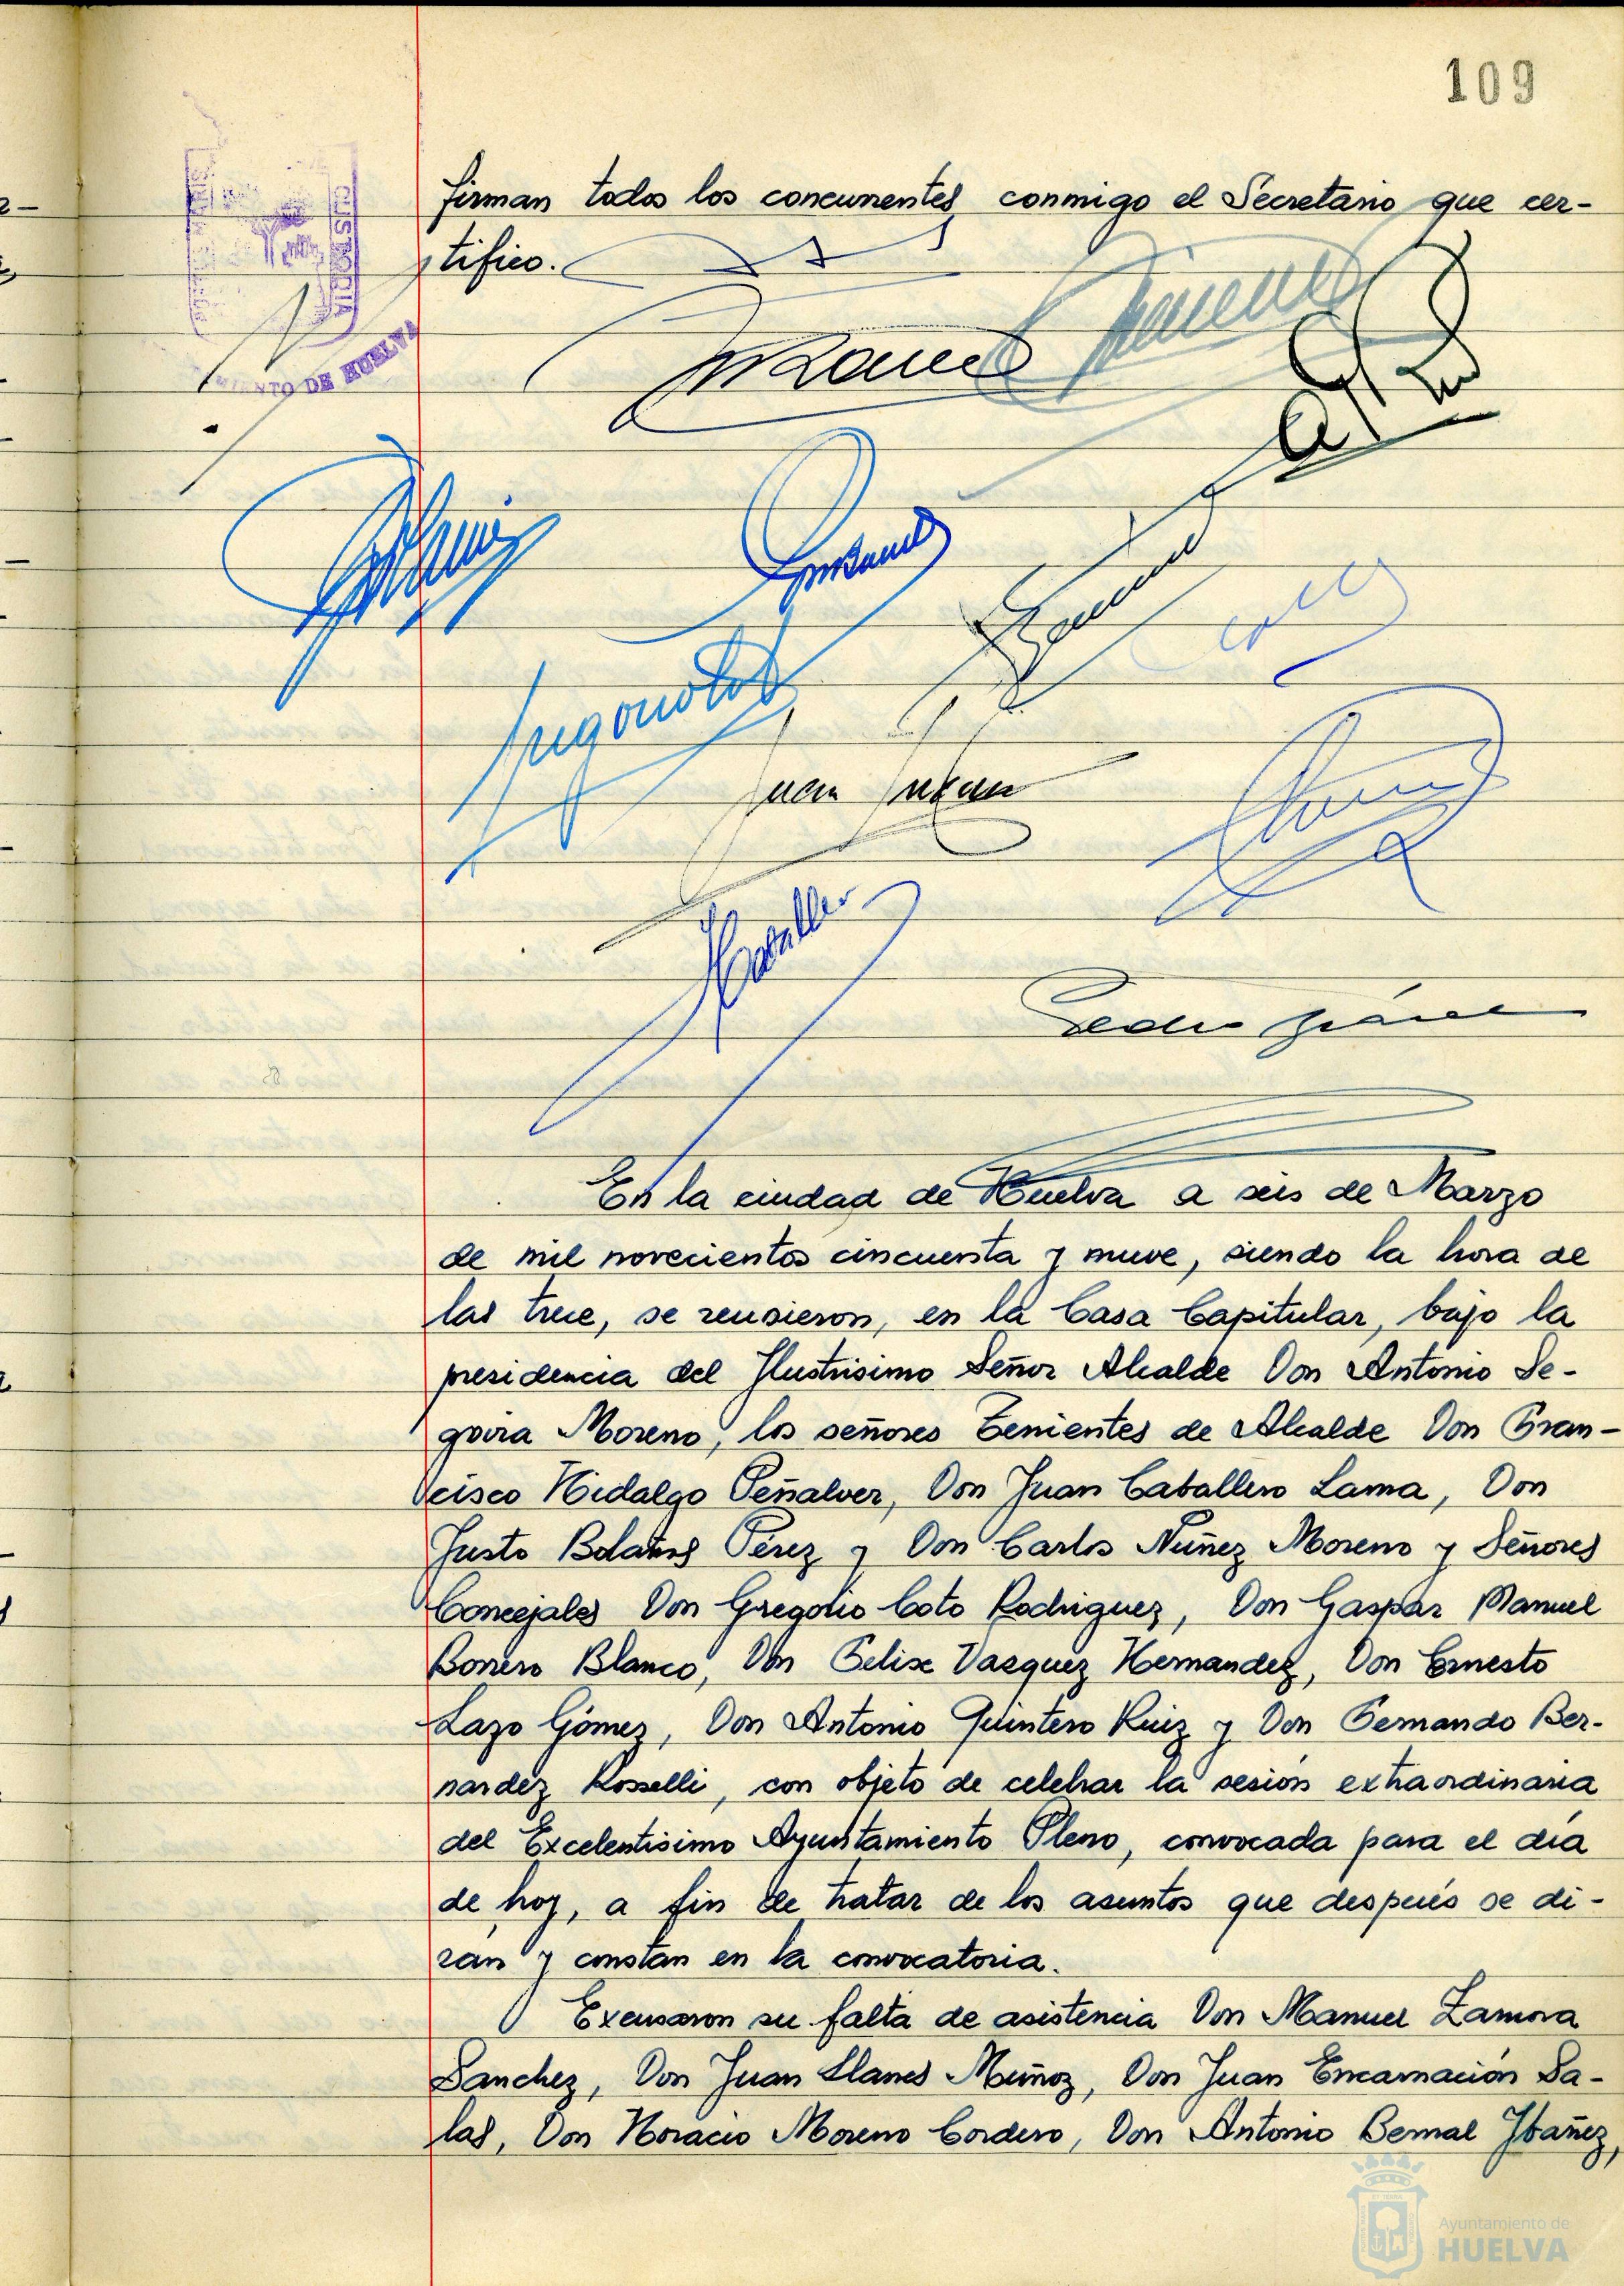 109
firman todos los concurrentes, conmigo el Secretario que cer-
tifico.
PORTUS MARIS
CUSTODIA
MIENTO DE HUELVA
Juan
Caballero
Pedro
En la ciudad de Huelva a seis de Marzo
de mil novecientos cincuenta y nueve, siendo la hora de
las trece, se reunieron, en la Casa Capitular, bajo la
presidencia del Ilustrisimo Señor Alcalde Don Antonio Se-
govia Moreno, los señores Tenientes de Alcalde Don Fran-
cisco Hidalgo Peñalver, Don Juan Caballero Lama, Don
Justo Bolaños Pérez y Don Carlos Núñez Moreno y Señores
Concejales Don Gregorio Coto Rodriguez, Don Gaspar Manuel
Borrero Blanco, Don Felix Vazquez Hernandez, Don Ernesto
Lazo Gómez, Don Antonio Quintero Ruiz y Don Fernando Ber-
nardez Rosselli, con objeto de celebrar la sesión extraordinaria
del Excelentisimo Ayuntamiento Pleno, convocada para el día
de hoy, a fin de tratar de los asuntos que después se di-
rán y constan en la convocatoria.
Excusaron su falta de asistencia Don Manuel Zamora
Sanchez, Don Juan Llanes Muñoz, Don Juan Encarnación Sa-
las, Don Horacio Moreno Cordero, Don Antonio Bernal Ybañez,
Ayuntamiento de
HUELVA